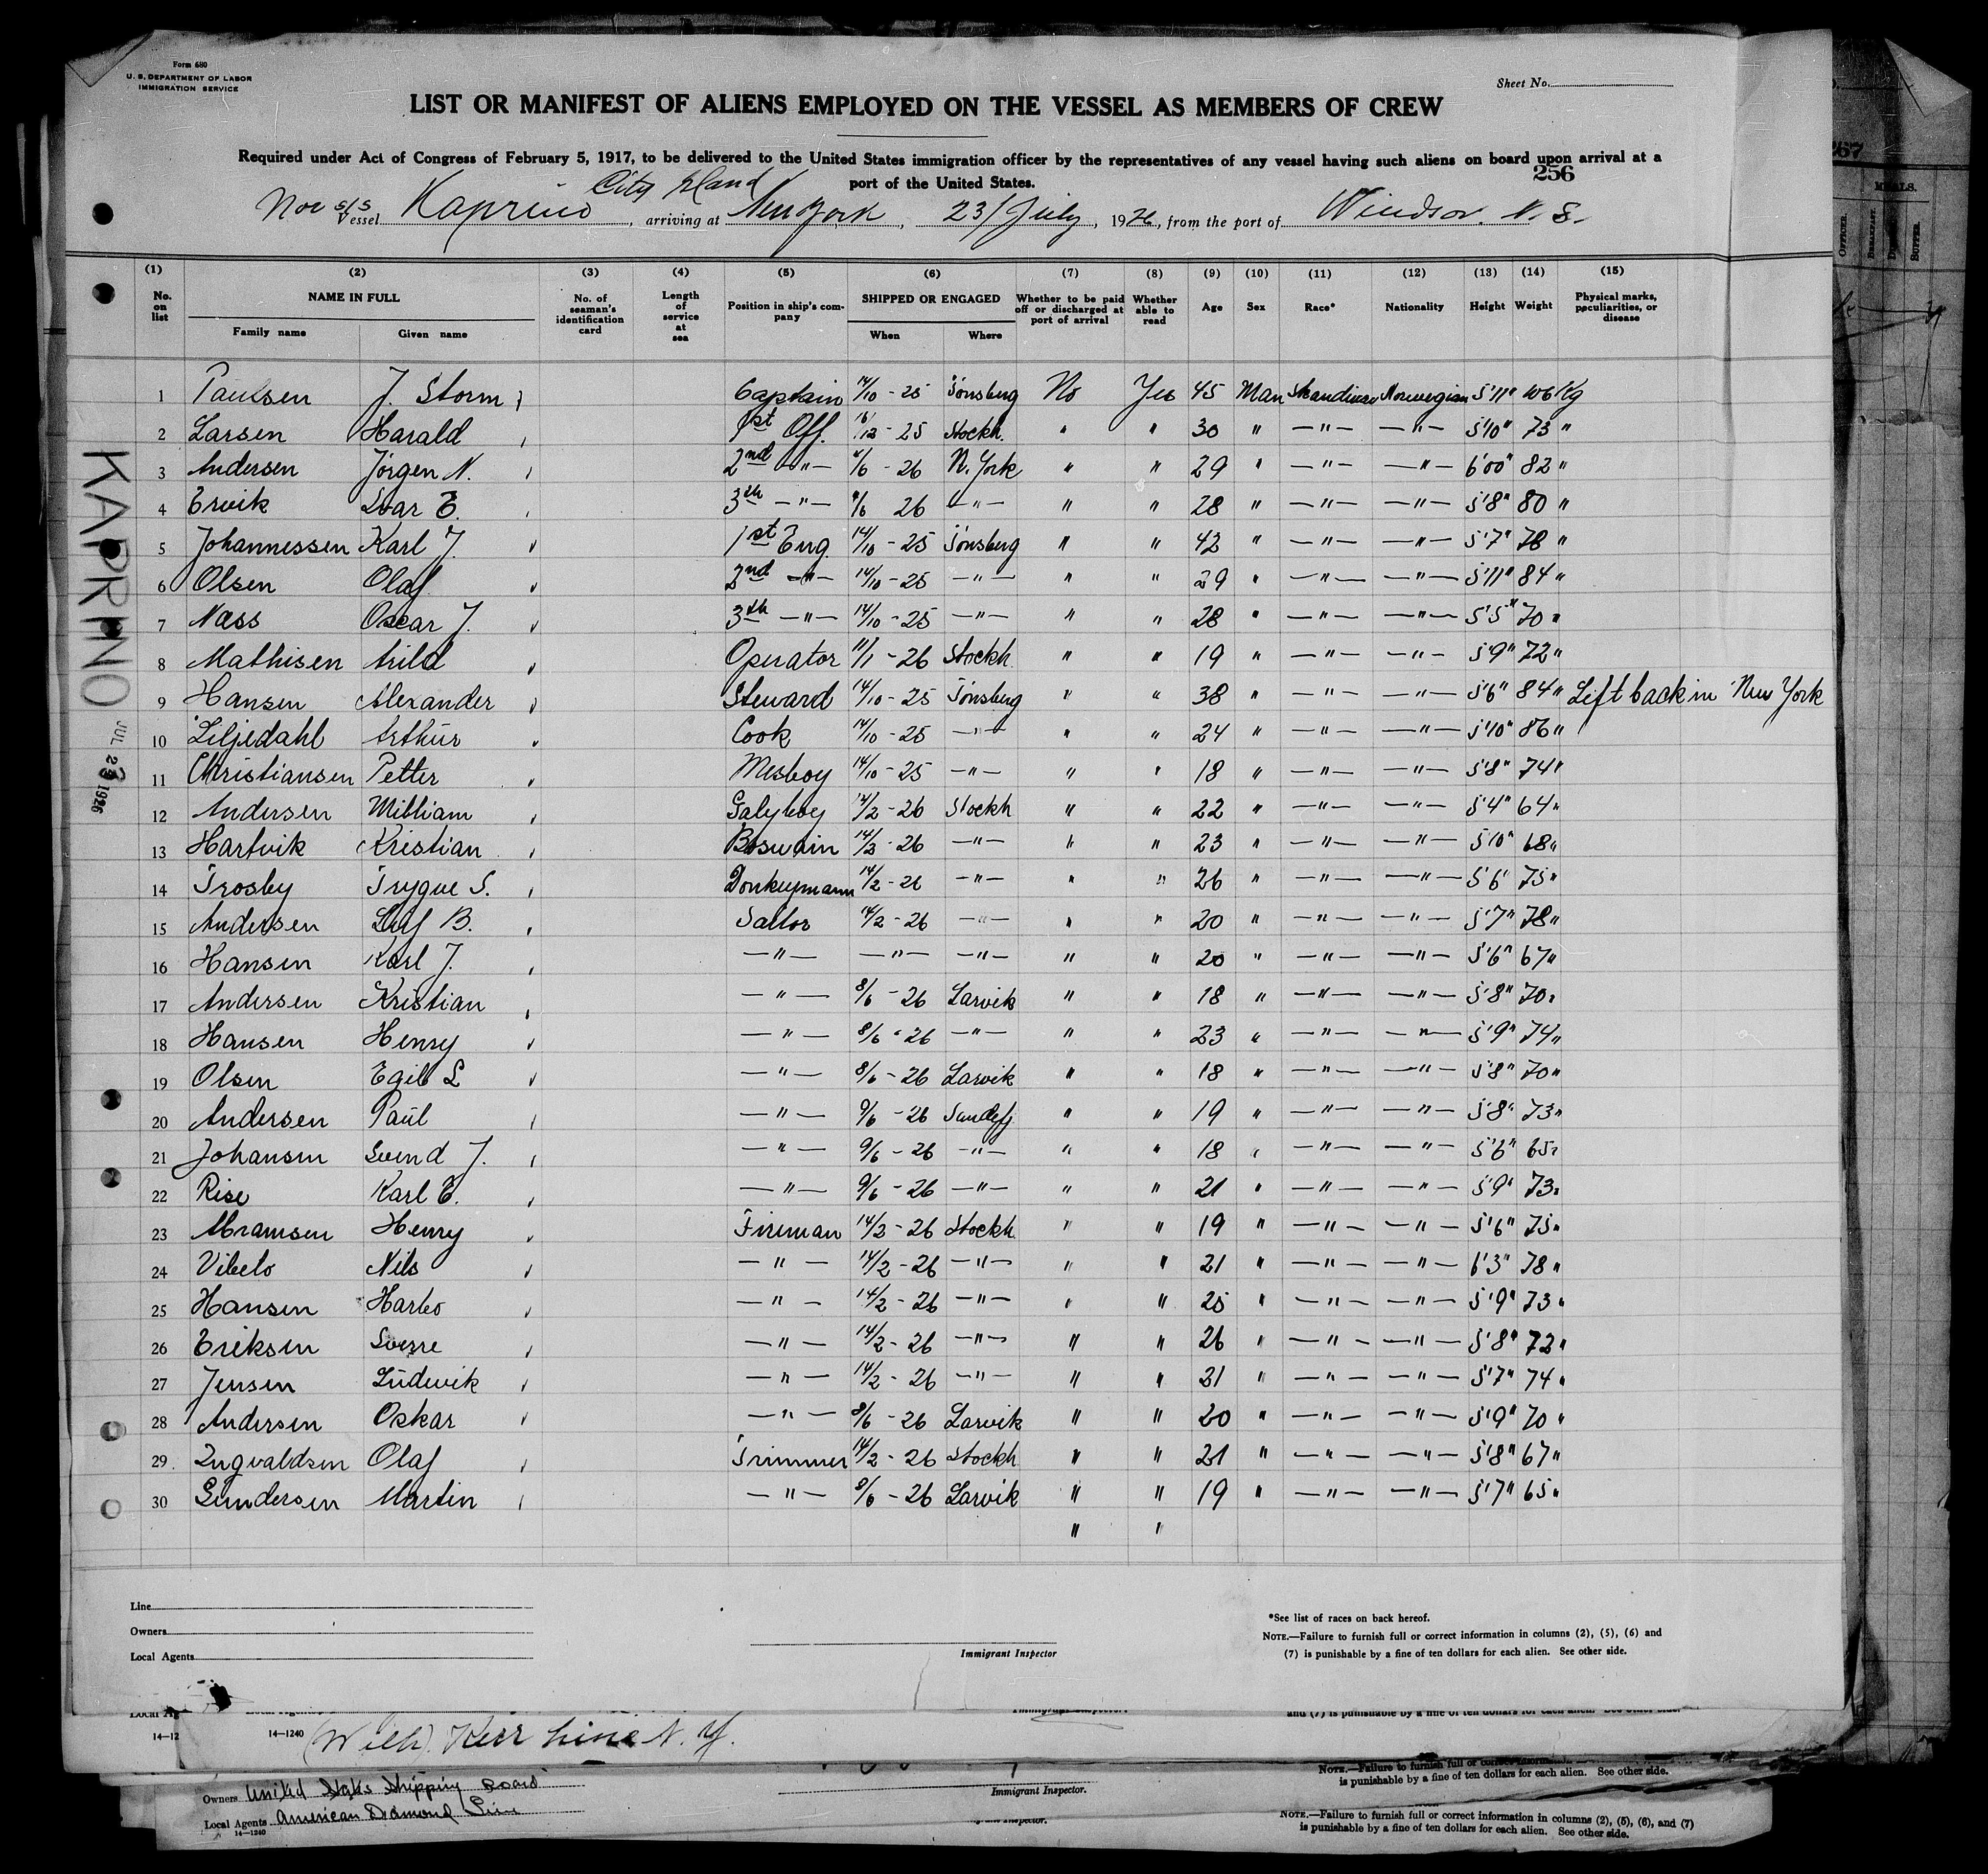 Form 680
U. S. DEPARTMENT OF LABOR
IMMIGRATION SERVICE
Sheet No.
LIST OR MANIFEST OF ALIENS EMPLOYED ON THE VESSEL AS MEMBERS OF CREW
Required under Act of Congress of February 5, 1917, to be delivered to the United States immigration officer by the representatives of any vessel having such aliens on board upon arrival at a
port of the United States.
256
City Island
Nor s/s Vessel Kaprino, arriving at New York, 23/July, 1926, from the port of Windsor. N. S.
(1) (2) (3) (4) (5) (6) (7) (8) (9) (10) (11) (12) (13) (14) (15)
No. on list NAME IN FULL Family name Given name No. of seaman's identification card Length of service at sea Position in ship's company SHIPPED OR ENGAGED When Where Whether to be paid off or discharged at port of arrival Whether able to read Age Sex Race* Nationality Height Weight Physical marks, peculiarities, or disease
1 Paulsen J. Storm Captain 14/10 - 25 Tönsberg No Yes 45 Man Skandinav Norwegian 5'11" 106 Kg
2 Larsen Harald 1st Off. 16/12 - 25 Stockh. " " 30 " —"— —"— 5'10" 73 "
3 Andersen Jörgen N. 2nd —"— - 26 N. York " " 29 " —"— —"— 6'00" 82 "
4 Ervik Ivar E. 3th —"— 26 —"— " " 28 " —"— —"— 5'8" 80 "
5 Johannessen Karl J. 1st Eng. 14/10 - 25 Tönsberg " " 42 " —"— —"— 5'7" 78 "
6 Olsen Olaf 2nd —"— 14/10 - 25 —"— " " 29 " —"— —"— 5'11" 84 "
7 Næss Oscar J. 3th —"— 14/10 - 25 —"— " " 28 " —"— —"— 5'5" 70 "
8 Mathisen Arild Operator 11/1 - 26 Stockh " " 19 " —"— —"— 5'9" 72 "
9 Hansen Alexander Steward 14/10 - 25 Tönsberg " " 38 " —"— —"— 5'6" 84 " Left back in New York
10 Liljedahl Arthur Cook 14/10 - 25 —"— " " 24 " —"— —"— 5'10" 86 "
11 Christiansen Petter Mesboy 14/10 - 25 —"— " " 18 " —"— —"— 5'8" 74 "
12 Andersen William Galyboy 14/2 - 26 Stockh " " 22 " —"— —"— 5'4" 64 "
13 Hartvik Kristian Boswain 14/2 - 26 —"— " " 23 " —"— —"— 5'10" 68 "
14 Trosby Trygve S. Donkeymann 14/2 - 26 —"— " " 26 " —"— —"— 5'6" 75 "
15 Andersen Leif B. Sailor 14/2 - 26 —"— " " 20 " —"— —"— 5'7" 78 "
16 Hansen Karl J. —"— —"— —"— " " 20 " —"— —"— 5'6" 67 "
17 Andersen Kristian —"— 8/6 - 26 Larvik " " 18 " —"— —"— 5'8" 70 "
18 Hansen Henry —"— 8/6 - 26 —"— " " 23 " —"— —"— 5'9" 74 "
19 Olsen Egil L —"— 8/6 - 26 Larvik " " 18 " —"— —"— 5'8" 70 "
20 Andersen Paul —"— 9/6 - 26 Sandefj " " 19 " —"— —"— 5'8" 73 "
21 Johansen Svend J. —"— 9/6 - 26 —"— " " 18 " —"— —"— 5'6" 65 "
22 Rise Karl E. —"— 9/6 - 26 —"— " " 21 " —"— —"— 5'9" 73 "
23 Abramsen Henry Fireman 14/2 - 26 Stockh " " 19 " —"— —"— 5'6" 75 "
24 Vibeto Nils —"— 14/2 - 26 —"— " " 21 " —"— —"— 6'3" 78 "
25 Hansen Harbo —"— 14/2 - 26 —"— " " 25 " —"— —"— 5'9" 73 "
26 Eriksen Sverre —"— 14/2 - 26 —"— " " 26 " —"— —"— 5'8" 72 "
27 Jensen Ludevik —"— 14/2 - 26 —"— " " 21 " —"— —"— 5'7" 74 "
28 Andersen Oskar —"— 8/6 - 26 Larvik " " 20 " —"— —"— 5'9" 70 "
29 Ingvaldsen Olaf Trimmer 14/2 - 26 Stockh " " 21 " —"— —"— 5'8" 67 "
30 Gundersen Martin —"— 8/6 - 26 Larvik " " 19 " —"— —"— 5'7" 65 "
" "
KAPRINO
JUL 23 1926
Line
Owners
Local Agents
Immigrant Inspector
*See list of races on back hereof.
NOTE.—Failure to furnish full or correct information in columns (2), (5), (6) and
(7) is punishable by a fine of ten dollars for each alien. See other side.
Local Ag
14—12
14—1240
(Wilh). Kerr Line N. Y.
NOTE.—Failure to furnish full or correct
is punishable by a fine of ten dollars for each alien. See other side.
Owners United States Shipping Board
Immigrant Inspector.
Local Agents American Diamond Line
14—1240
NOTE.—Failure to furnish full or correct information in columns (2), (5), (6), and (7)
is punishable by a fine of ten dollars for each alien. See other side.
267
MEALS.
OFFICER.
BREAKFAST.
SUPPER.